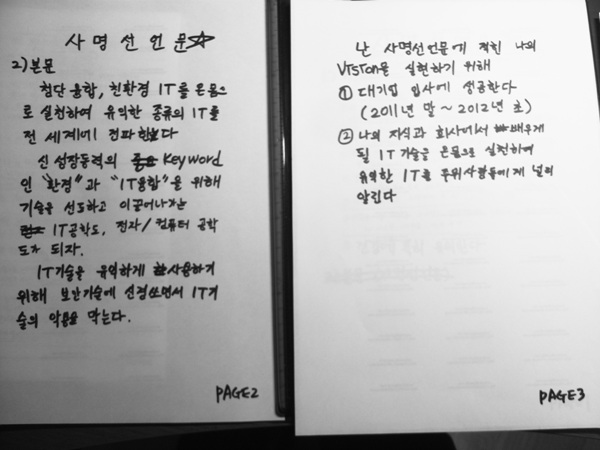 사명선언문☆
2) 본문
첨단 융합, 친환경 IT를 온몸으
로 실천하여 유익한 종류의 IT를
전 세계에 전파한다
신 성장동력의 Keyword
인 "환경"과 "IT융합"을 위해
기술을 선도하고 이끌어나가는
IT공학도, 전자/컴퓨터 공학
도가 되자.
IT기술을 유익하게 사용하기
위해 보안기술에 신경쓰면서 IT기
술의 악용을 막는다.
PAGE2
난 사명선언문에 적힌 나의
VISION을 실현하기 위해
① 대기업 입사에 성공한다
(2011년 말~2012년 초)
② 나의 지식과 회사에서 배우게
될 IT기술을 온몸으로 실천하여
유익한 IT를 주위사람들에게 널리
알린다
PAGE3